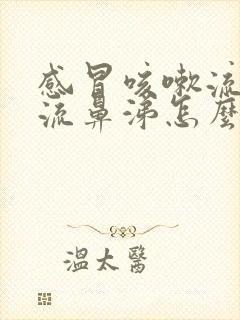 感冒咳嗽流
流鼻涕怎麼
溫太醫